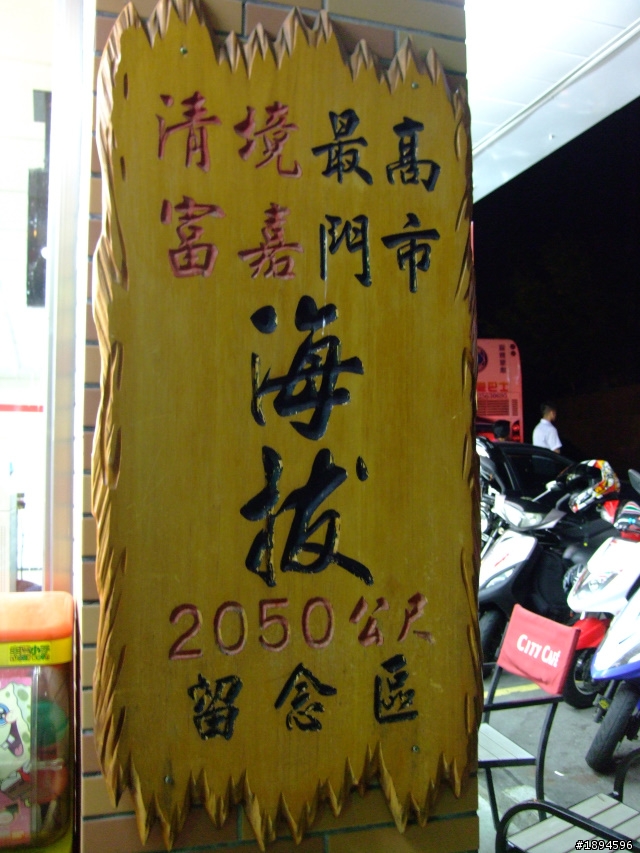 清境最高
富嘉門市
海
拔
2050公尺
留念區
CITY CAFÉ
巴士
#1894596